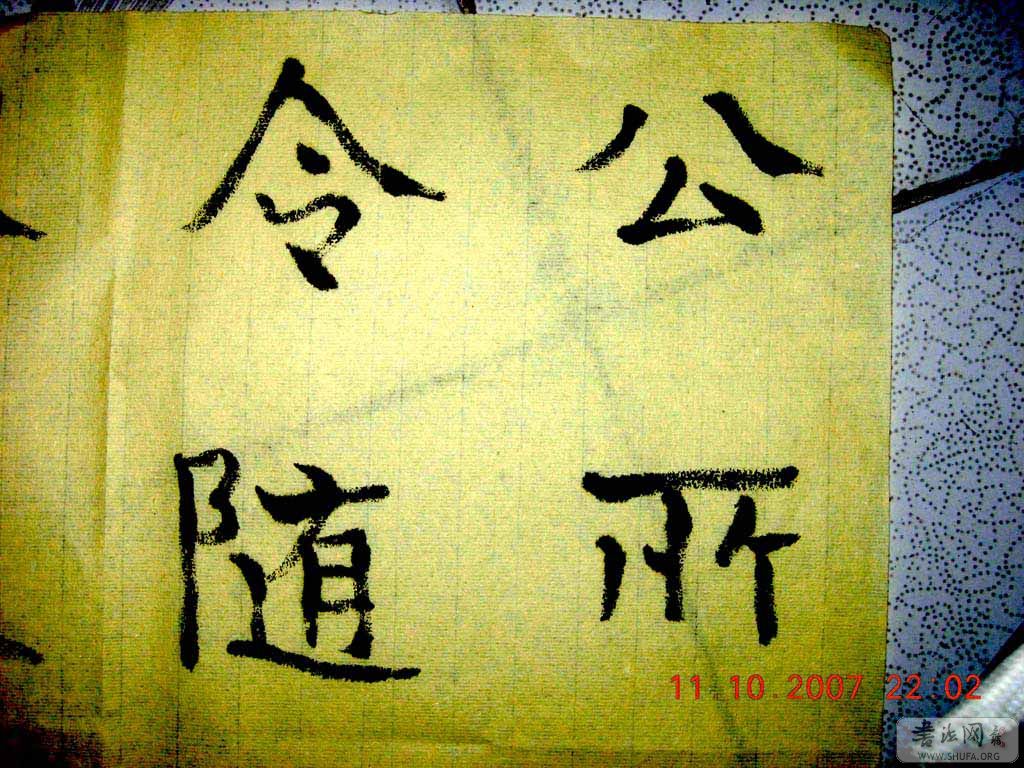 公所
令随
11 10.2007 22:02
书法网
WWW.SHUFA.ORG